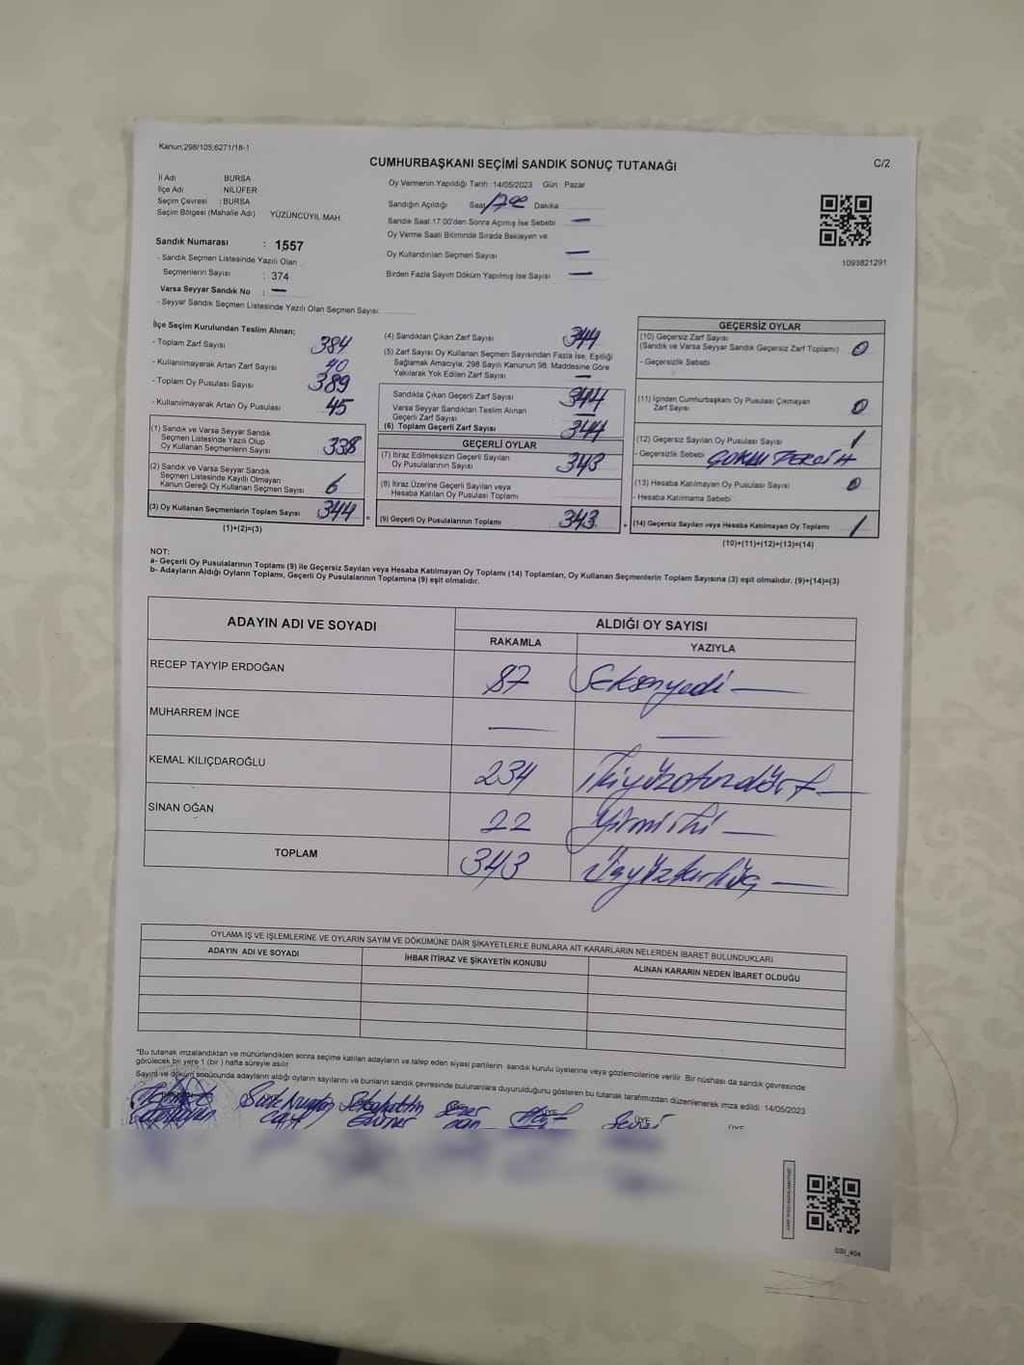 Kanun:298/105;6271/18-1
CUMHURBAŞKANI SEÇİMİ SANDIK SONUÇ TUTANAĞI
C/2
İl Adı BURSA
İlçe Adı NİLÜFER
Seçim Çevresi : BURSA
Seçim Bölgesi (Mahalle Adı) YÜZÜNCÜYIL MAH
Oy Vermenin Yapıldığı Tarih :14/05/2023 Gün: Pazar
Sandığın Açıldığı Saat Dakika
Sandık Saat 17:00'dan Sonra Açılmış İse Sebebi —
Oy Verme Saati Bitiminde Sırada Bekleyen ve
Oy Kullandırılan Seçmen Sayısı —
Birden Fazla Sayım Döküm Yapılmış İse Sayısı —
1093821291
Sandık Numarası : 1557
- Sandık Seçmen Listesinde Yazılı Olan
Seçmenlerin Sayısı : 374
Varsa Seyyar Sandık No : —
- Seyyar Sandık Seçmen Listesinde Yazılı Olan Seçmen Sayısı
İlçe Seçim Kurulundan Teslim Alınan;
- Toplam Zarf Sayısı 384
- Kullanılmayarak Artan Zarf Sayısı 40
- Toplam Oy Pusulası Sayısı 389
- Kullanılmayarak Artan Oy Pusulası 45
(1) Sandık ve Varsa Seyyar Sandık
Seçmen Listesinde Yazılı Olup
Oy Kullanan Seçmenlerin Sayısı 338
(2) Sandık ve Varsa Seyyar Sandık
Seçmen Listesinde Kayıtlı Olmayan
Kanun Gereği Oy Kullanan Seçmen Sayısı 6
(3) Oy Kullanan Seçmenlerin Toplam Sayısı 344
(1)+(2)=(3)
(4) Sandıktan Çıkan Zarf Sayısı 344
(5) Zarf Sayısı Oy Kullanan Seçmen Sayısından Fazla İse, Eşitliği
Sağlamak Amacıyla; 298 Sayılı Kanunun 98. Maddesine Göre
Yakılarak Yok Edilen Zarf Sayısı —
Sandıkla Çıkan Geçerli Zarf Sayısı 344
Varsa Seyyar Sandıktan Teslim Alınan
Geçerli Zarf Sayısı —
(6) Toplam Geçerli Zarf Sayısı 344
GEÇERLİ OYLAR
(7) İtiraz Edilmeksizin Geçerli Sayılan
Oy Pusulalarının Sayısı 343
(8) İtiraz Üzerine Geçerli Sayılan veya
Hesaba Katılan Oy Pusulası Toplamı
(9) Geçerli Oy Pusulalarının Toplamı 343
GEÇERSİZ OYLAR
(10) Geçersiz Zarf Sayısı
(Sandık ve Varsa Seyyar Sandık Geçersiz Zarf Toplamı) 0
- Geçersizlik Sebebi
(11) İçinden Cumhurbaşkanı Oy Pusulası Çıkmayan
Zarf Sayısı 0
(12) Geçersiz Sayılan Oy Pusulası Sayısı 1
- Geçersizlik Sebebi
(13) Hesaba Katılmayan Oy Pusulası Sayısı 0
- Hesaba Katılmama Sebebi
(14) Geçersiz Sayılan veya Hesaba Katılmayan Oy Toplamı 1
(10)+(11)+(12)+(13)=(14)
NOT:
a- Geçerli Oy Pusulalarının Toplamı (9) ile Geçersiz Sayılan veya Hesaba Katılmayan Oy Toplamı (14) Toplamları, Oy Kullanan Seçmenlerin Toplam Sayısına (3) eşit olmalıdır. (9)+(14)=(3)
b- Adayların Aldığı Oyların Toplamı, Geçerli Oy Pusulalarının Toplamına (9) eşit olmalıdır.
ADAYIN ADI VE SOYADI ALDIĞI OY SAYISI
RAKAMLA YAZIYLA
RECEP TAYYİP ERDOĞAN 87 Seksenyedi —
MUHARREM İNCE — —
KEMAL KILIÇDAROĞLU 234 İkiyüzotuzdört —
SİNAN OĞAN 22 Yirmiiki —
TOPLAM 343 Üçyüzkırküç —
OYLAMA İŞ VE İŞLEMLERİNE VE OYLARIN SAYIM VE DÖKÜMÜNE DAİR ŞİKAYETLERLE BUNLARA AİT KARARLARIN NELERDEN İBARET BULUNDUKLARI
ADAYIN ADI VE SOYADI İHBAR İTİRAZ VE ŞİKAYETİN KONUSU ALINAN KARARIN NEDEN İBARET OLDUĞU
*Bu tutanak imzalandıktan ve mühürlendikten sonra seçime katılan adayların ve talep eden siyasi partilerin sandık kurulu üyelerine veya gözlemcilerine verilir. Bir nüshası da sandık çevresinde
görülecek bir yere 1 (bir) hafta süreyle asılır.
Sayım ve döküm sonucunda adayların aldığı oyların sayılarını ve bunların sandık çevresinde bulunanlara duyurulduğunu gösteren bu tutanak tarafımızdan düzenlenerek imza edildi. 14/05/2023
ÜYE ÜYE ÜYE